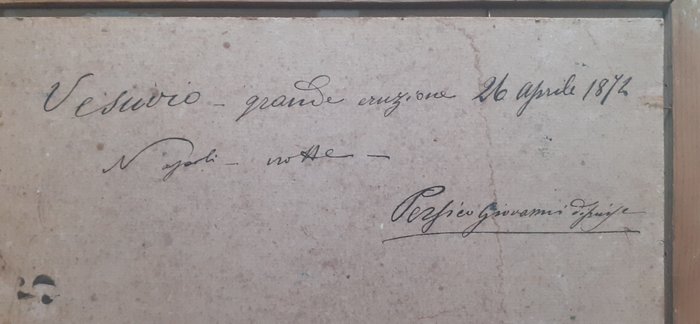 Vesuvio - grande eruzione 26 aprile 1872
Napoli - notte -
Persico Giovanni dipinse